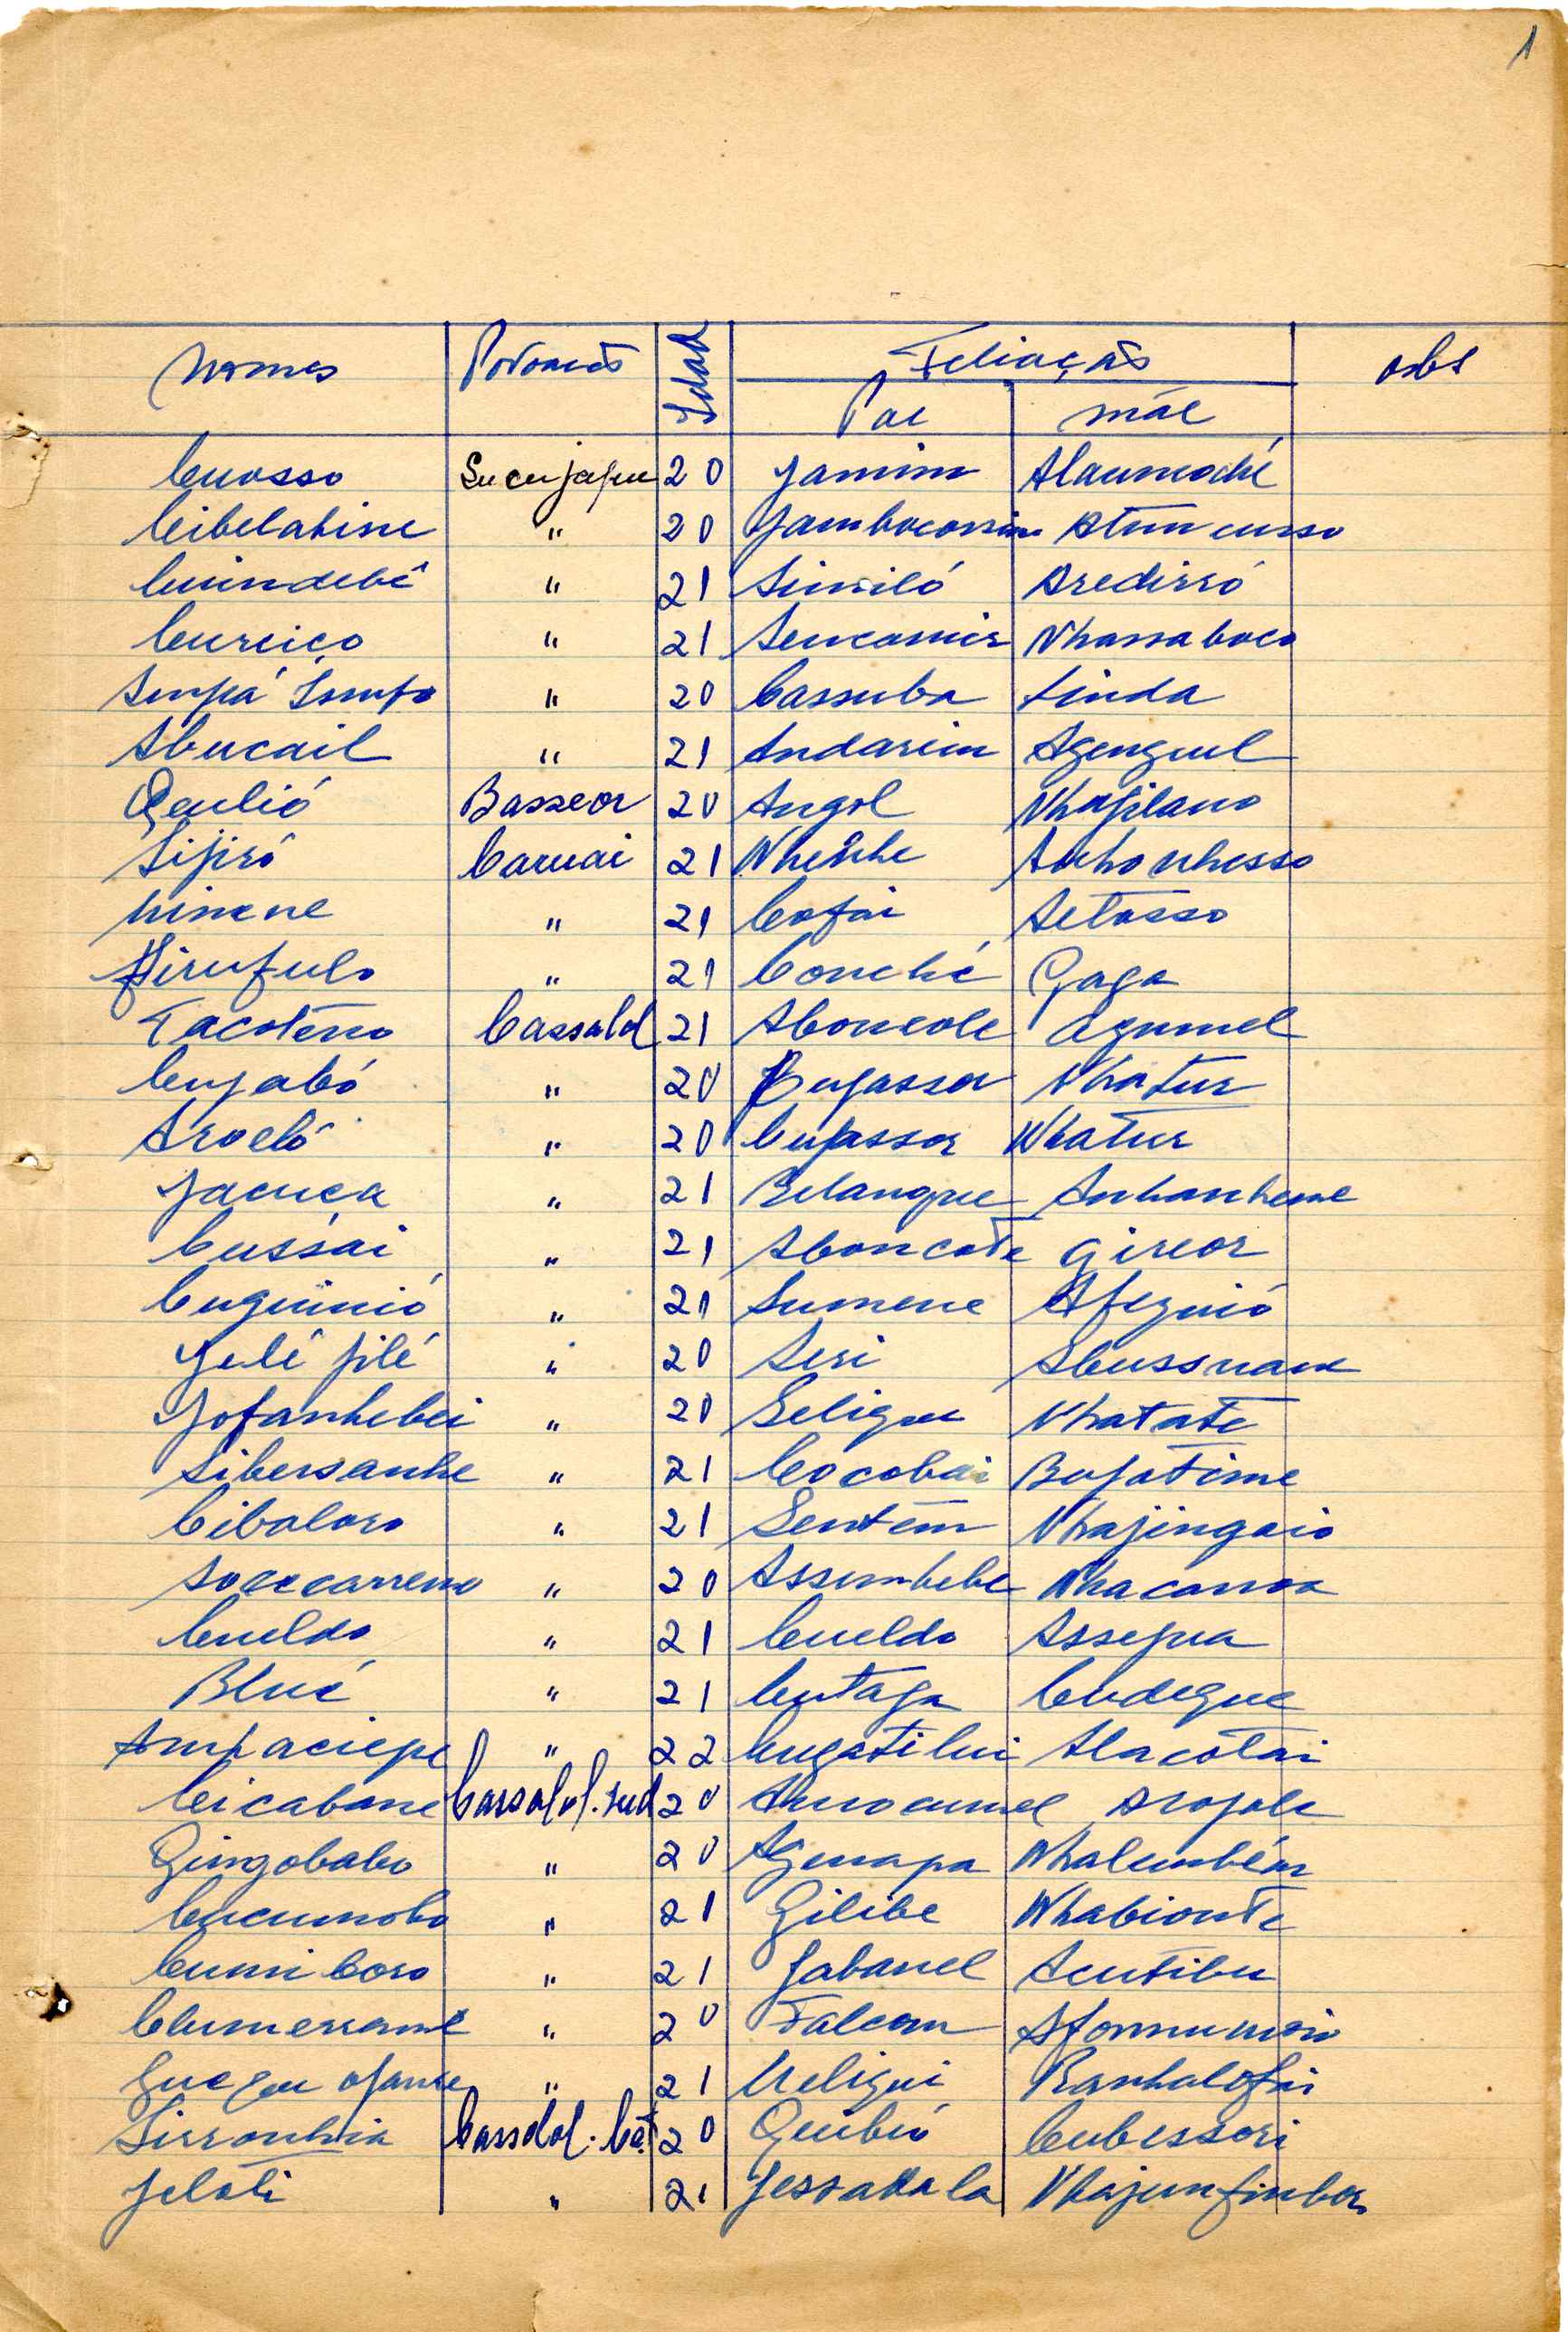 1
Nomes Povoação Idad Feliação obs
Pae mãe
Cuosso Sucujapu 20 Jamim Alaumoché
Cibelabine " 20 Jambocossim
Cuindebé " 21 Similó Aredirró
Cureiço " 21 Sencomir Nhassaboco
" 20 Cassuba Finda
Abucail " 21 Andarim Agenguel
Qeulió Basseor 20 Angol Nhafilano
Sijiró Caruai 21 Anhonhesso
Ninene " 21 Cofai Aetosso
Firufulo " 21 Conché Gaga
Tacoteno Cassalol 21 Aboncole Agumel
Cujabó " 20 Bujassor Nhatur
Aroeló " 20 Cujassor Nhatur
Jacuca " 21 Belangue Anhanheme
Cussai " 21 Aboncote Gireor
Cuguinió " 21 Sumene Afeguió
Jelé jilé " 20 Seri Abussuam
Jofanhebei " 20 Seligue Nhatate
Sibersanhe " 21 Cocobai Bojatime
Ciboloro " 21 Sentem Nhajingaio
" 20 Assumbebe Nhacanoa
Cueldo " 21 Cueldo Assepua
Blué " 21 Cutaga Cudegue
Ampaciepe " 22 Cugatilui Alacotai
Cicabane Cassalol. sud 20 Arojole
Gingobabo " 20 Agenapa Nhalembém
Cucumobo " 21 Gilibe Nhabionte
Cumi Coro " 21 Jabanel Acutibu
" 20 Falcom
" 21 Ueligui Banhalofai
Sirronhia Cassalol. 20 Quibió Cubessori
Jeloti " 21 Jessakala